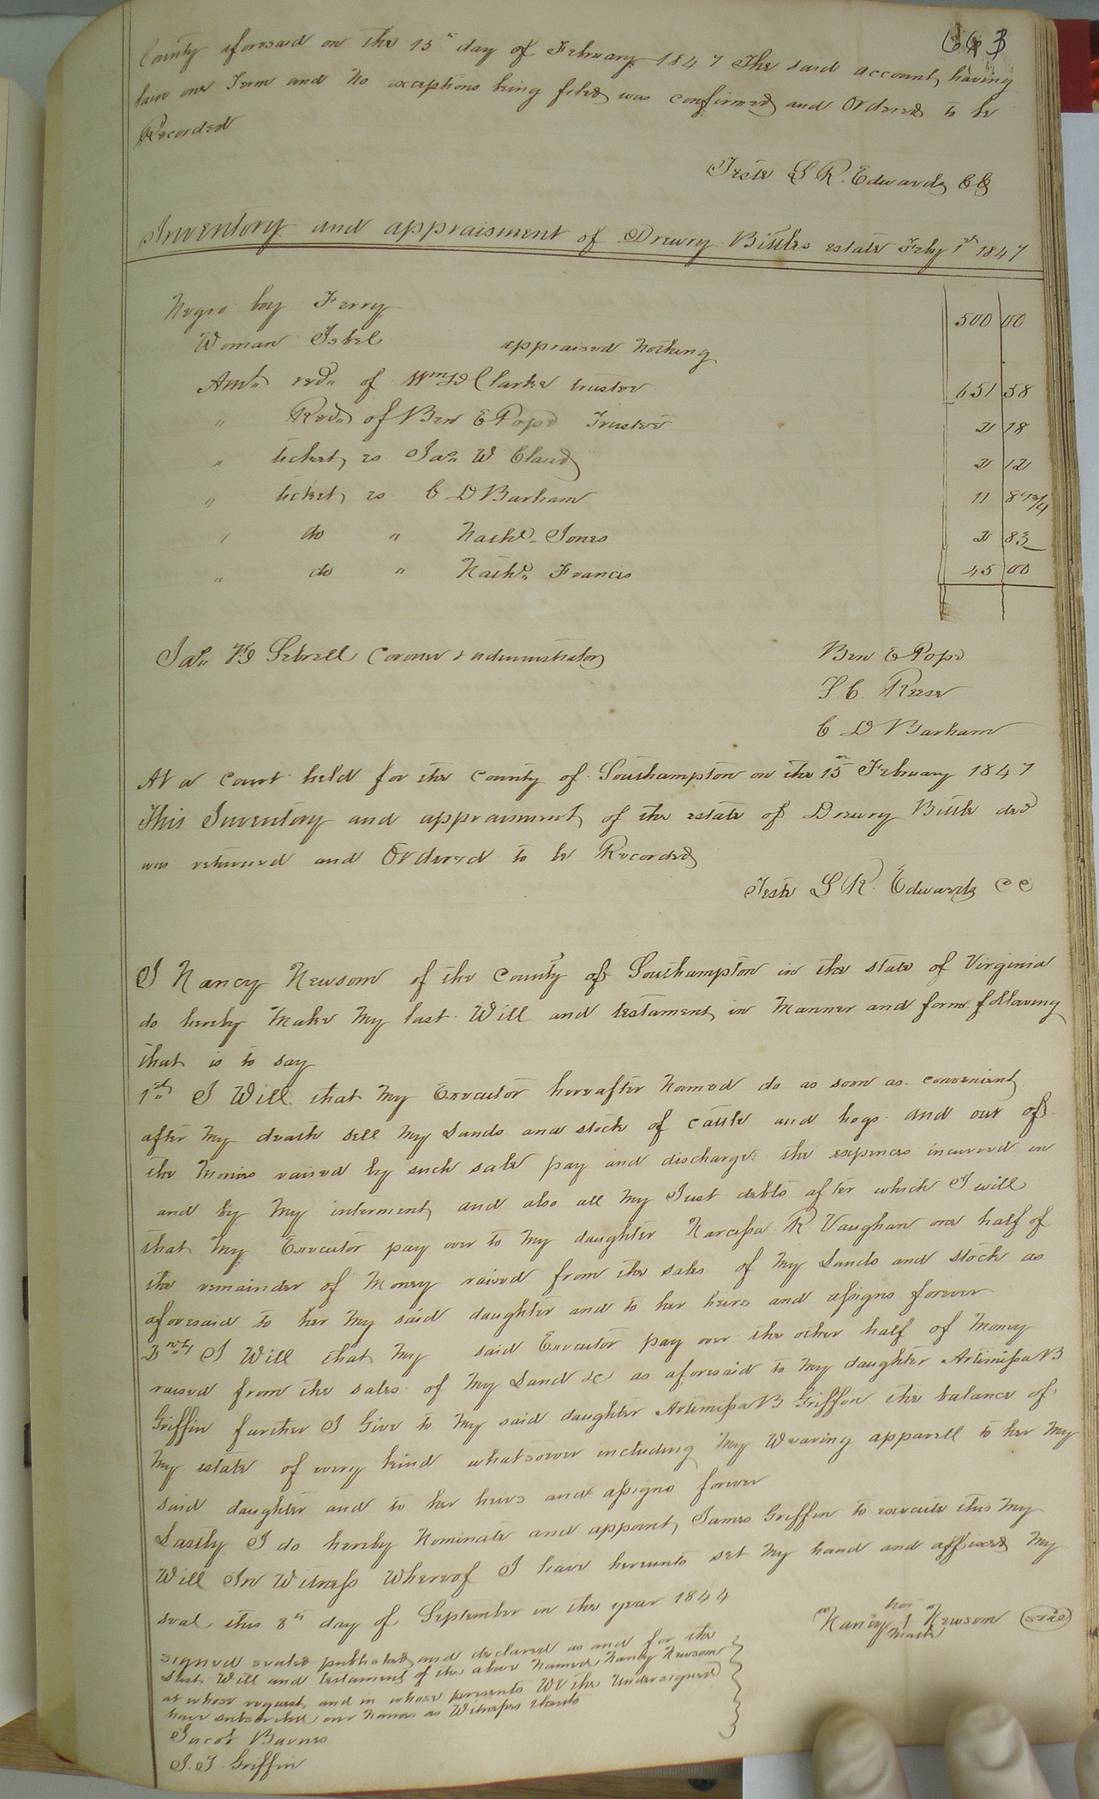 663
County aforesaid on the 15th day of February 1847 The said account, having
laid one Term and no exceptions being filed, was confirmed and Ordered to be
Recorded
Teste L R. Edwards CC
Inventory and appraisment of Drewry Bittles estate Feby 1st 1847
Negro boy Ferry 500 00
Woman Isbel appraised nothing
Amt recd of Wm D Clarke trustee 651 58
" Recd of Ben E Pope Trustee 2 18
" ticket, vs Jas W Claud 2 12
" ticket, vs C D Barham 11
" do " Nathl Jones 2 83
" do " Nathl Francis 45 00
Jas Sebrell Coroner & administrator
Ben E Pope
C Reese
C D Barham
At a Court held for the County of Southampton on the 15th February 1847
This Inventory and appraisment, of the estate of Drewry Bittle decd
was returned and Ordered to be Recorded
Teste L R. Edwards CC
I Nancy Newsom of the County of Southampton in the state of Virginia
do hereby make my last Will and testament, in manner and form following
that is to say
1st I Will that my Executor hereafter named do as soon as convenient
after my death sell my Lands and stock of cattle and hogs and out of
the monies raised by such sale pay and discharge the expences incurred in
and by my interment, and also all my Just debts after which I will
that my Executor pay over to my daughter Narcissa R Vaughan one half of
the remainder of money raised from the sales of my Lands and stock as
aforesaid to her my said daughter and to her heirs and assigns forever
2ndly I Will that my said Executor pay over the other half of money
raised from the sales of my Land &c as aforesaid to my daughter Artimissa B
Griffin further I Give to my said daughter Artimissa B Griffin the balance of
my estate of every kind whatsoever including my Wearing apparell to her my
said daughter and to her heirs and assigns forever
Lastly I do hereby nominate and appoint, James Griffin to execute this my
Will In Witness Whereof I have hereunto set my hand and affixed my
seal this 8th day of September in the year 1844
Nancy her mark Newsom seal
signed sealed published, and declared as and for the
last Will and testament of the above named Nancy Newsom
at whose request, and in whose presents We the undersigned
have subscribed our names as Witnesses thereto
Jacob Barnes
J. T. Griffin